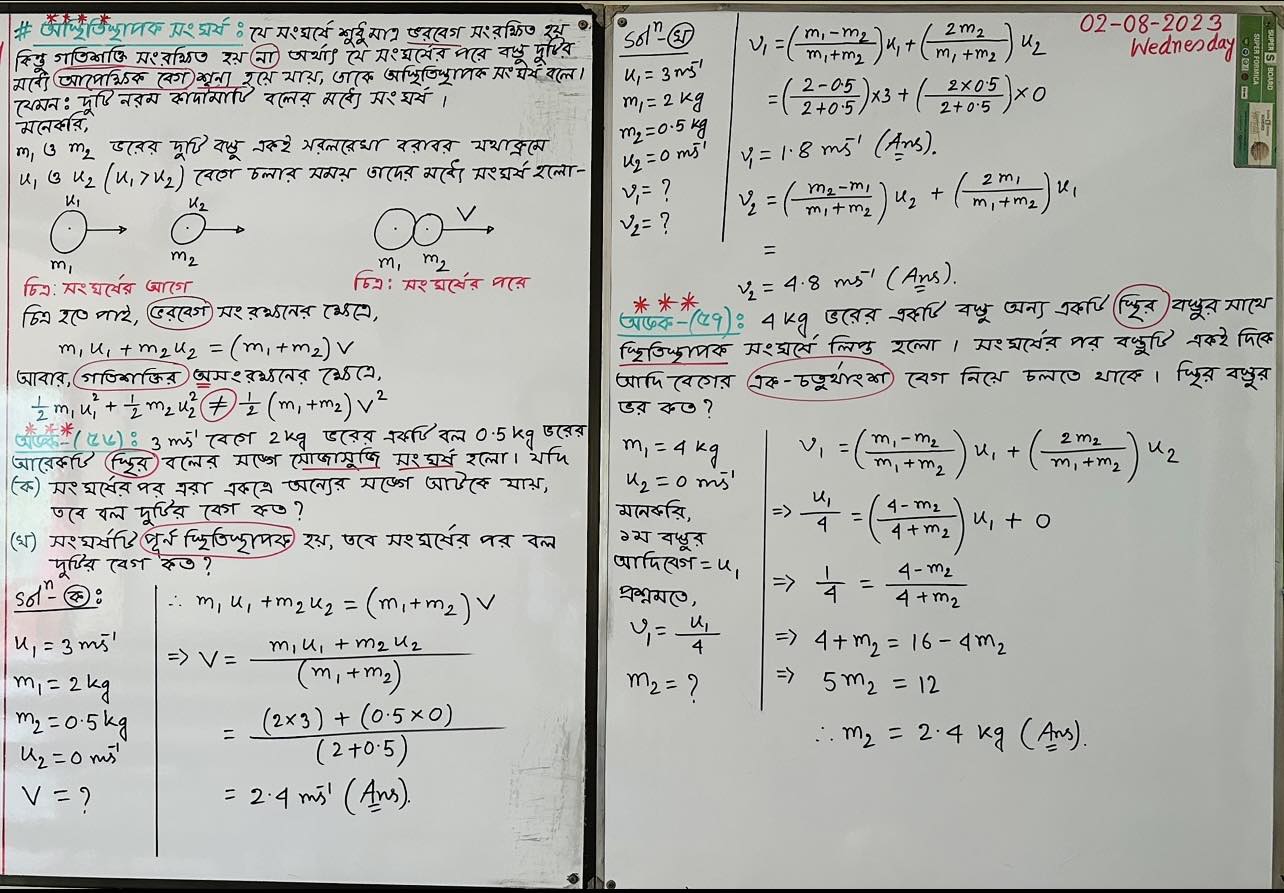 # অস্থিতিস্থাপক সংঘর্ষ : যে সংঘর্ষে শুধুমাত্র ভরবেগ সংরক্ষিত হয়
কিন্তু গতিশক্তি সংরক্ষিত হয় না অর্থাৎ যে সংঘর্ষের পরে বস্তু দুটির
মধ্যে আপেক্ষিক বেগ শূন্য হয়ে যায়, তাকে অস্থিতিস্থাপক সংঘর্ষ বলে।
যেমন: দুটি নরম কাদামাটি বলের মধ্যে সংঘর্ষ ।
মনেকরি,
m₁ ও m₂ ভরের দুটি বস্তু একই সরলরেখা বরাবর যথাক্রমে
u₁ ও u₂ (u₁ > u₂) বেগে চলার সময় তাদের মধ্যে সংঘর্ষ হলো-
u₁ u₂ V
m₁ m₂ m₁ m₂
চিত্র: সংঘর্ষের আগে চিত্র: সংঘর্ষের পরে
চিত্র হতে পাই, ভরবেগ সংরক্ষনের ক্ষেত্রে,
m₁u₁ + m₂u₂ = (m₁+m₂) V
আবার, গতিশক্তির অসংরক্ষনের ক্ষেত্রে,
½ m₁u₁² + ½ m₂u₂² ≠ ½ (m₁+m₂) V²
অংক-(৫৬) : 3 ms⁻¹ বেগে 2kg ভরের একটি বল 0.5 kg ভরের
আরেকটি স্থির বলের সঙ্গে সোজাসুজি সংঘর্ষ হলো। যদি
(ক) সংঘর্ষের পর এরা একত্রে অন্যের সঙ্গে আটকে যায়,
তবে বল দুটির বেগ কত?
(খ) সংঘর্ষটি পূর্ন স্থিতিস্থাপক হয়, তবে সংঘর্ষের পর বল
দুটির বেগ কত?
Solⁿ - ক :
u₁ = 3 ms⁻¹
m₁ = 2 kg
m₂ = 0.5 kg
u₂ = 0 ms⁻¹
V = ?
∴ m₁u₁ + m₂u₂ = (m₁+m₂) V
=> V = (m₁u₁ + m₂u₂)/(m₁+m₂)
= ((2×3) + (0.5×0))/(2+0.5)
= 2.4 ms⁻¹ (Ans).
02-08-2023
Wednesday
SUPER S BOARD
SUPER FORMICA
Solⁿ খ
u₁ = 3 ms⁻¹
m₁ = 2 kg
m₂ = 0.5 kg
u₂ = 0 ms⁻¹
v₁ = ?
v₂ = ?
v₁ = ((m₁-m₂)/(m₁+m₂)) u₁ + (2m₂/(m₁+m₂)) u₂
= ((2-0.5)/(2+0.5)) ×3 + ((2×0.5)/(2+0.5)) ×0
v₁ = 1.8 ms⁻¹ (Ans).
v₂ = ((m₂-m₁)/(m₁+m₂)) u₂ + (2m₁/(m₁+m₂)) u₁
=
v₂ = 4.8 ms⁻¹ (Ans).
অংক-(৫৭) : 4 kg ভরের একটি বস্তু অন্য একটি স্থির বস্তুর সাথে
স্থিতিস্থাপক সংঘর্ষে লিপ্ত হলো । সংঘর্ষের পর বস্তুটি একই দিকে
আদি বেগের এক-চতুর্থাংশ বেগ নিয়ে চলতে থাকে । স্থির বস্তুর
ভর কত?
m₁ = 4 kg
u₂ = 0 ms⁻¹
মনেকরি,
১ম বস্তুর
আদিবেগ = u₁
প্রশ্নমতে,
v₁ = u₁/4
m₂ = ?
v₁ = ((m₁-m₂)/(m₁+m₂)) u₁ + (2m₂/(m₁+m₂)) u₂
=> u₁/4 = ((4-m₂)/(4+m₂)) u₁ + 0
=> 1/4 = (4-m₂)/(4+m₂)
=> 4+m₂ = 16-4m₂
=> 5m₂ = 12
∴ m₂ = 2.4 kg (Ans).